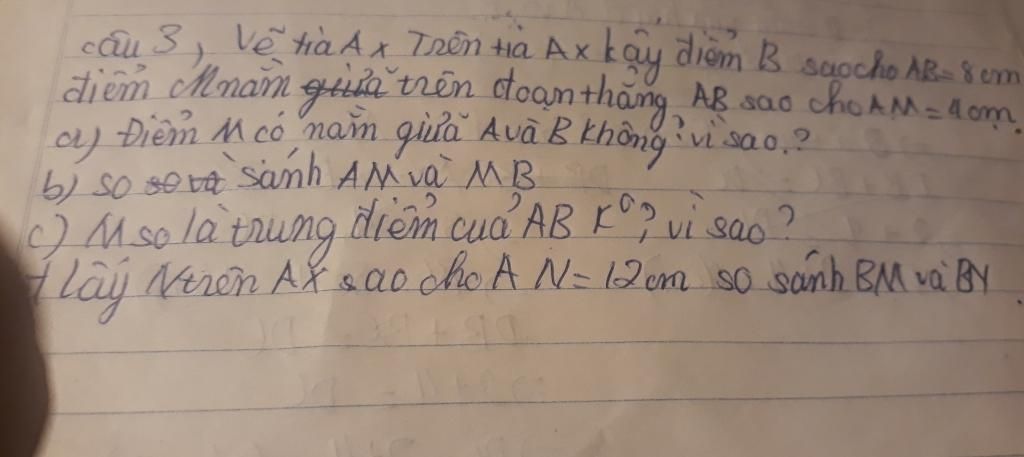 câu 3, Vẽ tia Ax Trên tia Ax lấy điểm B saocho AB=8cm
điểm M nằm giữa trên đoạn thẳng AB sao cho AM=4cm.
a) Điểm M có nằm giữa A và B không? vì sao.?
b) so so và sánh AM và MB
c) M so là trung điểm của AB K⁰? vì sao?
lấy N trên Ax sao cho AN=12cm so sánh BM và BN.